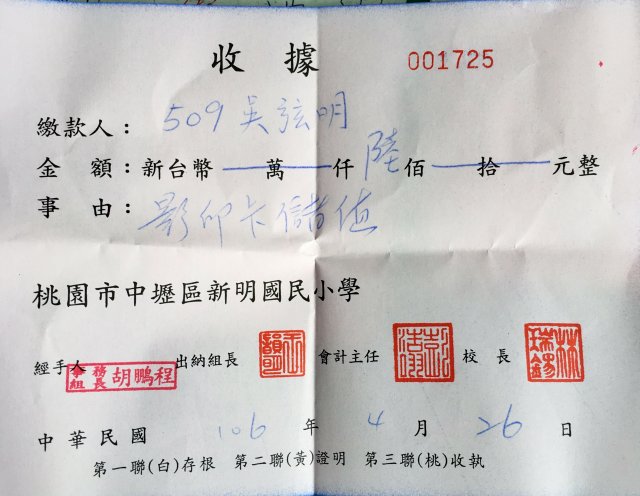 收據 001725
繳款人：509 吳弦明
金額：新台幣 萬 仟 陸佰 拾 元整
事由：影印卡儲值
桃園市中壢區新明國民小學
經手人 事務組長 胡鵬程 出納組長 會計主任 校長 林瑞錫
中華民國 106 年 4 月 26 日
第一聯(白)存根 第二聯(黃)證明 第三聯(桃)收執